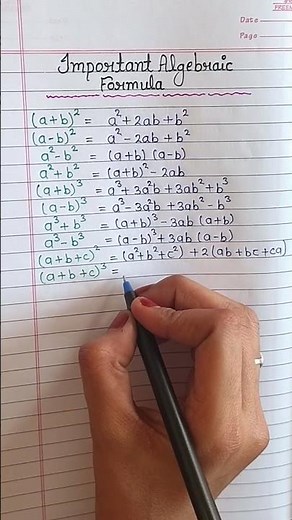 Date
Page
Important Algebraic
Formula
(a+b)² = a²+2ab+b²
(a-b)² = a²-2ab+b²
a²-b² = (a+b) (a-b)
a²+b² = (a+b)²-2ab
(a+b)³ = a³+3a²b+3ab²+b³
(a-b)³ = a³-3a²b+3ab²-b³
a³+b³ = (a+b)³-3ab (a+b)
a³-b³ = (a-b)³+3ab (a-b)
(a+b+c)² = (a²+b²+c²) +2(ab+bc+ca)
(a+b+c)³ =